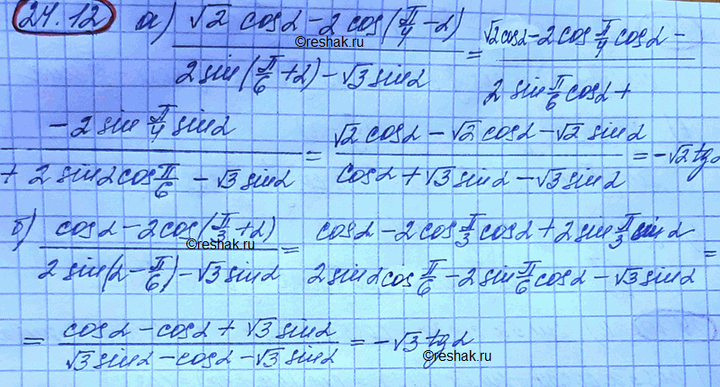 24.12 а) (√2 cosα - 2 cos(π/4 - α)) / (2 sin(π/6 + α) - √3 sinα) = (√2 cosα - 2 cos π/4 cosα - / 2 sin π/6 cosα +
- 2 sin π/4 sinα / + 2 sinα cos π/6 - √3 sinα) = (√2 cosα - √2 cosα - √2 sinα) / (cosα + √3 sinα - √3 sinα) = -√2 tgα
©reshak.ru
б) (cosα - 2cos(π/3 + α)) / (2 sin(α - π/6) - √3 sinα) = (cosα - 2 cos π/3 cosα + 2 sin π/3 sinα) / (2 sinα cos π/6 - 2 sin π/6 cosα - √3 sinα) =
©reshak.ru
= (cosα - cosα + √3 sinα) / (√3 sinα - cosα - √3 sinα) = -√3 tgα
©reshak.ru